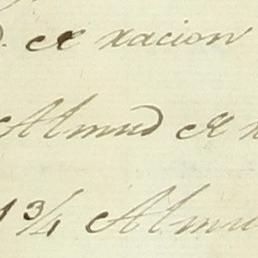 de racion
Almud de
1 3/4 Almu